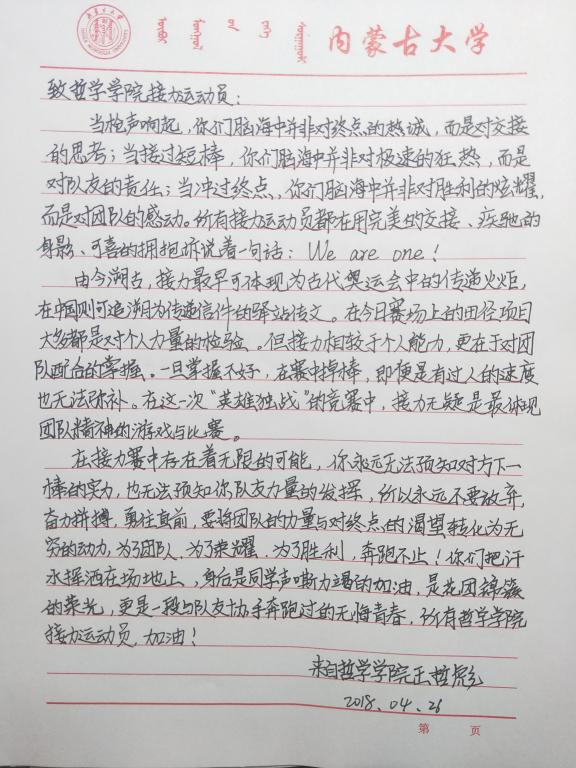 内蒙古大学
致哲学学院接力运动员：
当枪声响起，你们脑海中并非对终点的热诚，而是对交接
的思考；当接过短棒，你们脑海中并非对极速的狂热，而是
对队友的责任；当冲过终点，你们脑海中并非对胜利的炫耀，
而是对团队的感动。所有接力运动员都在用完美的交接、疾驰的
身影、可喜的拥抱诉说着一句话：We are one！
由今溯古，接力最早可体现为古代奥运会中的传递火炬，
在中国则可追溯为传递信件的驿站传文。在今日赛场上的田径项目
大多都是对个人力量的检验。但接力相较于个人能力，更在于对团
队配合的掌握。一旦掌握不好，在赛中掉棒，即便是有过人的速度
也无法弥补。在这一次“英雄独战”的竞赛中，接力无疑是最体现
团队精神的游戏与比赛。
在接力赛中存在着无限的可能，你永远无法预知对方下一
棒的实力，也无法预知你队友力量的发挥，所以永远不要放弃，
奋力拼搏，勇往直前，要将团队的力量与对终点的渴望转化为无
穷的动力，为了团队、为了荣耀、为了胜利，奔跑不止！你们把汗
水挥洒在场地上，身后是同学声嘶力竭的加油，是花团锦簇
的荣光，更是一段与队友协手奔跑过的无悔青春，所有哲学学院
接力运动员，加油！
来自哲学学院王哲彪
2018.04.26
第 页